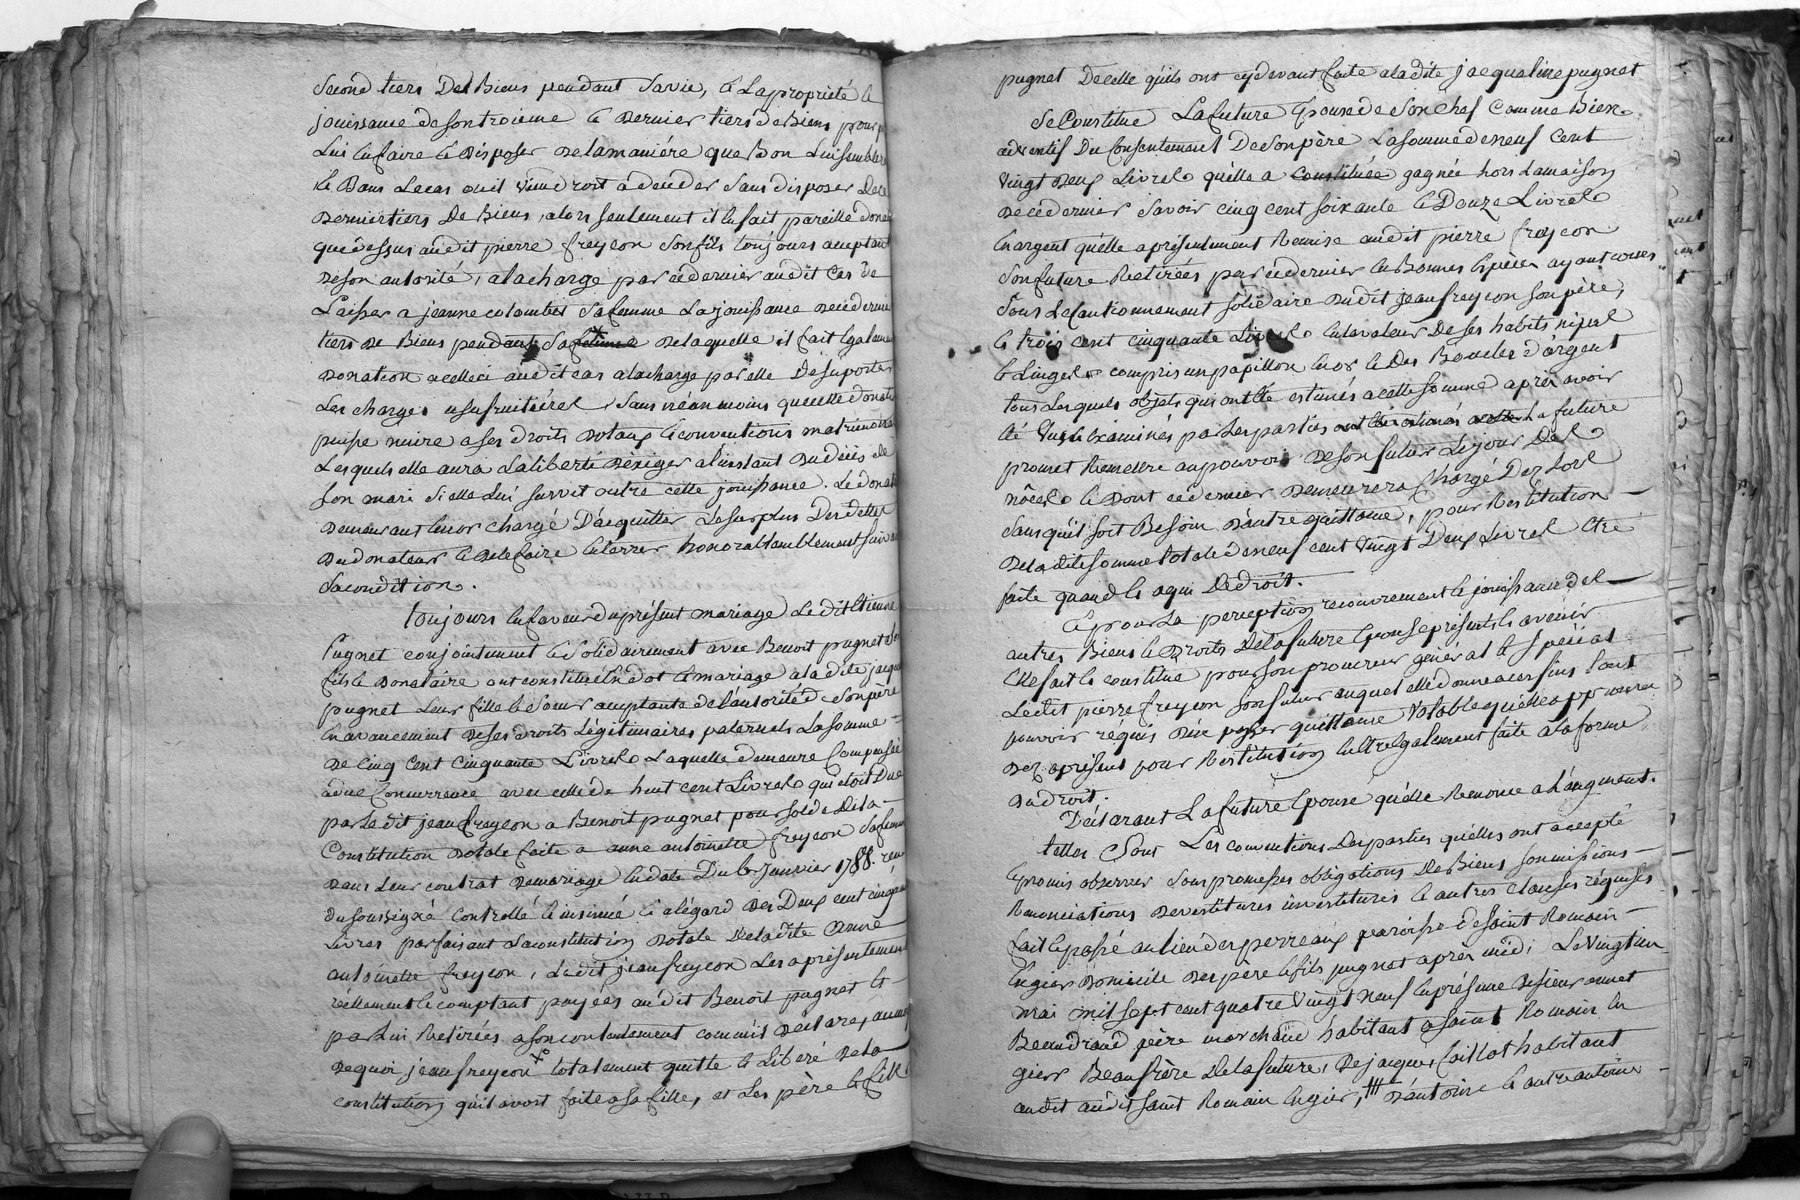 second tiers Des Biens pendant Savie, & Lapropriété &
jouissance de son troisieme & Dernier tiers de Biens pour
Lui En faire & Disposer De la maniére que Bon Lui semblera
& Dans Le cas ou il viendroit a décéder Sans disposer De ce
Dernier tiers De Biens, alors seulement il En fait pareille dona
que dessus audit pierre freycon Son fils toujours acceptant
De son autorité, a la charge par ce dernier audit Cas de
Laisser a jeanne colombet Sa femme La jouissance De ce dernier
tiers De Biens pendant Sa De laquelle il fait Egalement
Donation a celleci audit cas a la charge par elle De suporter
Les charges usufruitiéres, Sans néanmoins que cette donation
puisse nuire a ses droits Dotaux & conventions matrimoniales
Lesquels elle aura La liberté D'éxiger a l'instant Du décès de
Son mari si elle Lui survit outre cette jouissance. Le donataire
Demeurant Encor chargé D'acquitter Le surplus Des dettes
Du donateur & De le faire Enterrer honorablement suivant
Sa condition.
toujours En faveur du présent mariage Ledit Etienne
Pugnet conjointement & Solidairement avec Benoit pugnet son
fils & Donataire ont constitué En dot & mariage a ladite jacqueline
pugnet Leur fille & Soeur acceptante de l'autorité de Son père
En avancement De ses droits Légitimaires paternels La somme
De Cinq Cent Cinquante Livres Laquelle demeure Compensée
a due Concurrence avec celle de huit cent Livres qui étoit Due
par Ledit jean freycon a Benoit pugnet pour solde De la
Constitution Dotale faite a anne antoinette freycon Sa femme
Dans Leur contrat De mariage En date Du 6 Janvier 1788. reçu
du soussigné Controllé & insinué & a l'égard Des Deux cent cinquante
Livres parfaisant La constitution Dotale De ladite Anne
antoinette freycon, Ledit jean freycon Les a présentement
réellement & comptant payées audit Benoit pugnet &
par Lui Retirées a son contentement comm'il Déclare, au moyen
De quoi jean freycon totalement quitte & Libéré De la
constitution qu'il avoit faite a sa fille, et Les père & fils
pugnet De celle qu'ils ont cy devant faite a ladite jacqueline pugnet
Se Constitue La future Epouse de Son Chef Comme Bien
adventif Du Consentement De Son père La somme de neuf Cent
Vingt Deux Livres qu'elle a constituée gagnée hors La maison
De ce dernier Savoir cinq cent soixante & Douze Livres
En argent qu'elle a présentement Remise audit pierre freycon
Son future Retirées par ce dernier En Bonnes Espèces ayant cours
Sous Le Cautionnement solidaire Dudit jean freycon son père,
& trois cent cinquante Livres En la valeur De ses habits nipes
& Linges compris un papillon En or & Des Boucles d'argent
tous Lesquels objets qui ont Eté estimés a cette somme après avoir
été Vus & Examinés par Les parties La future
promet Remettre au pouvoir De son futur Le jour Des
nôces & Dont ce dernier Demeurera Chargé Dez Lors
Sans qu'il soit Besoin D'autre quittance, pour Restitution
De ladite somme totale de neuf cent Vingt Deux Livres Etre
faite quand & a qui De droit.
& pour La perception recouvrement & jouissance des
autres Biens & Droits De la future Epouse présents & avenir
Elle fait & constitue pour son procureur général & Special
Ledit pierre freycon son futur auquel elle donne a ces fins tout
pouvoir réquis D'en passer quittance Valable qu'elle approuve
Dez aprésent pour Restitution En Etre Egalement faite a la forme
Du droit.
Déclarant La future Epouse qu'elle Renonce a L'augment.
telles Sont Les conventions Des parties qu'elles ont accepté
& promis observer Sous promesses obligations De Biens soumissions
Renonciations Devestitures investitures & autres Clauses réquises
fait & passé au lieu des perreaux paroisse de saint Romain
En gier Domicile Des père & fils pugnet après midi Le Vingtun
mai mil sept cent quatre Vingt Neuf En présence De sieur annet
Beaudrand père marchand habitant a Saint Romain En
gier Beaufrère De la future, De jacques faillot habitant
audit audit saint Romain En gier, D'antoine & autre antoine